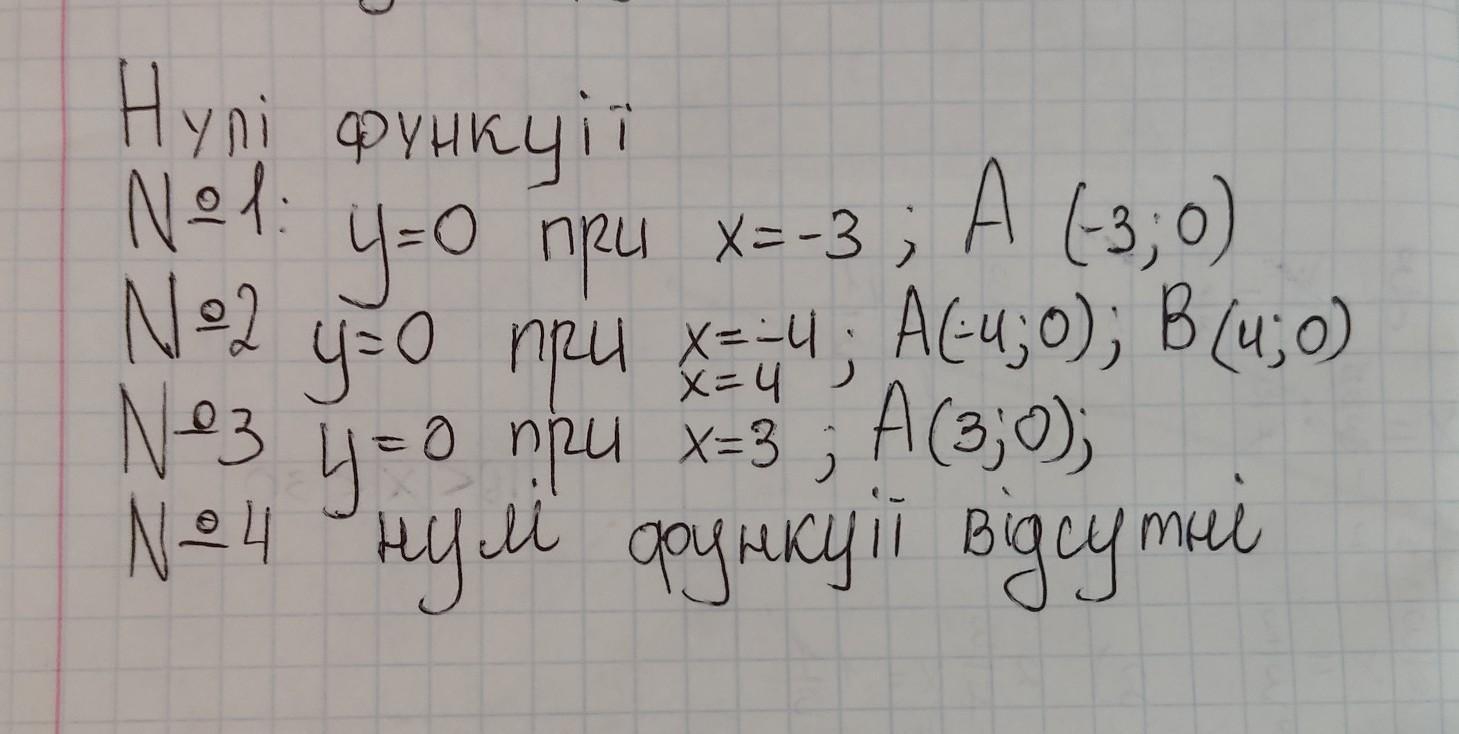 Нулі функції
№1: y=0 при x=-3 ; A (-3; 0)
№2 y=0 при x=-4 ; A(-4;0); B(4;0)
x=4
№3 y=0 при x=3 ; A(3;0);
№4 нулі функції відсутні